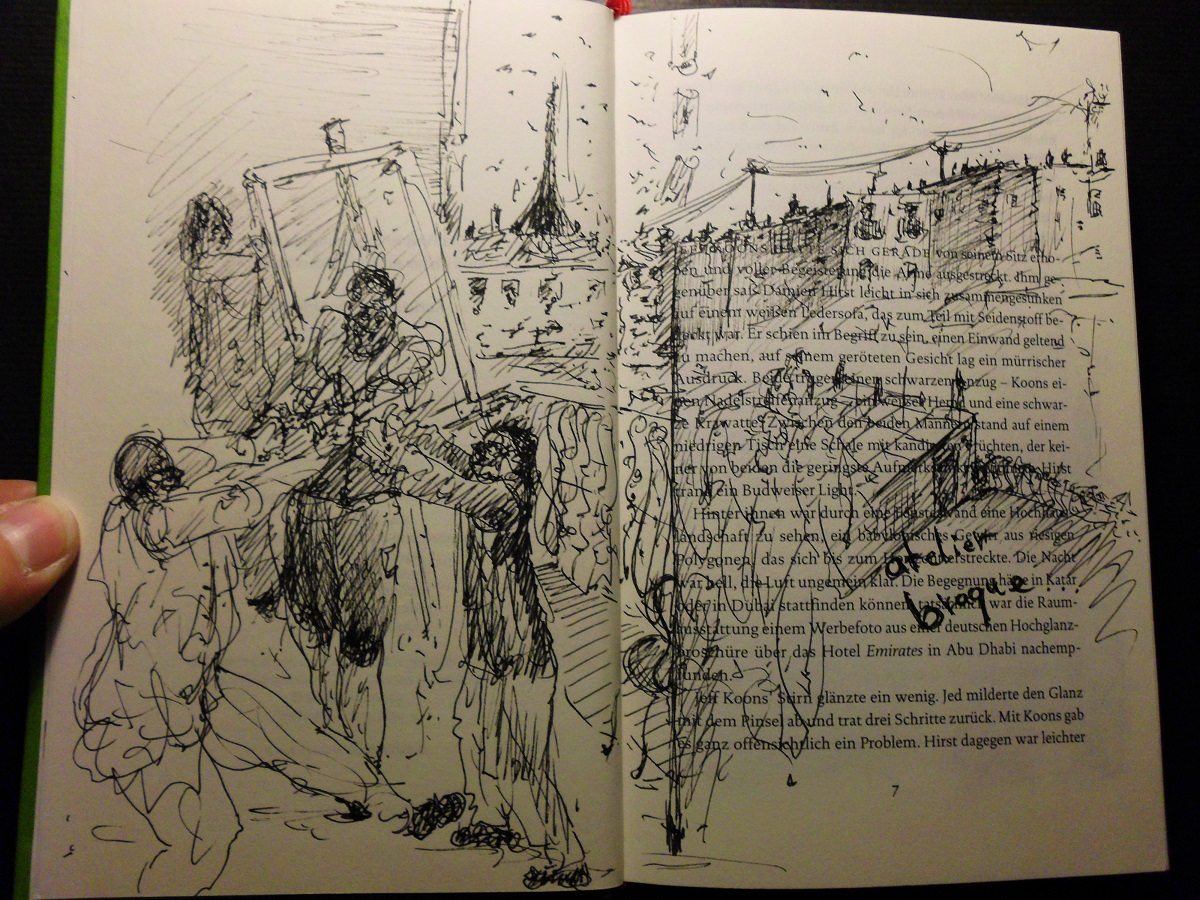 JEFF KOONS HATTE SICH GERADE von seinem Sitz erho-
ben und voller Begeisterung die Arme ausgestreckt. Ihm ge-
genüber saß Damien Hirst leicht in sich zusammengesunken
auf einem weißen Ledersofa, das zum Teil mit Seidenstoff be-
deckt war. Er schien im Begriff zu sein, einen Einwand geltend
zu machen, auf seinem geröteten Gesicht lag ein mürrischer
Ausdruck. Beide trugen einen schwarzen Anzug – Koons ei-
nen Nadelstreifenanzug –, ein weißes Hemd und eine schwar-
ze Krawatte. Zwischen den beiden Männern stand auf einem
niedrigen Tisch eine Schale mit kandierten Früchten, der kei-
ner von beiden die geringste Aufmerksamkeit Hirst
trank ein Budweiser Light.
Hinter ihnen war durch eine Fensterwand eine Hochhaus-
landschaft zu sehen, ein babylonisches Gewirr aus riesigen
Polygonen, das sich bis zum Horizont erstreckte. Die Nacht
war hell, die Luft ungemein klar. Die Begegnung hätte in Katar
oder in Dubai stattfinden können, tatsächlich war die Raum-
ausstattung einem Werbefoto aus einer deutschen Hochglanz-
broschüre über das Hotel Emirates in Abu Dhabi nachemp-
funden.
Jeff Koons' Stirn glänzte ein wenig. Jed milderte den Glanz
mit dem Pinsel ab und trat drei Schritte zurück. Mit Koons gab
es ganz offensichtlich ein Problem. Hirst dagegen war leichter
7
atelier
braque...